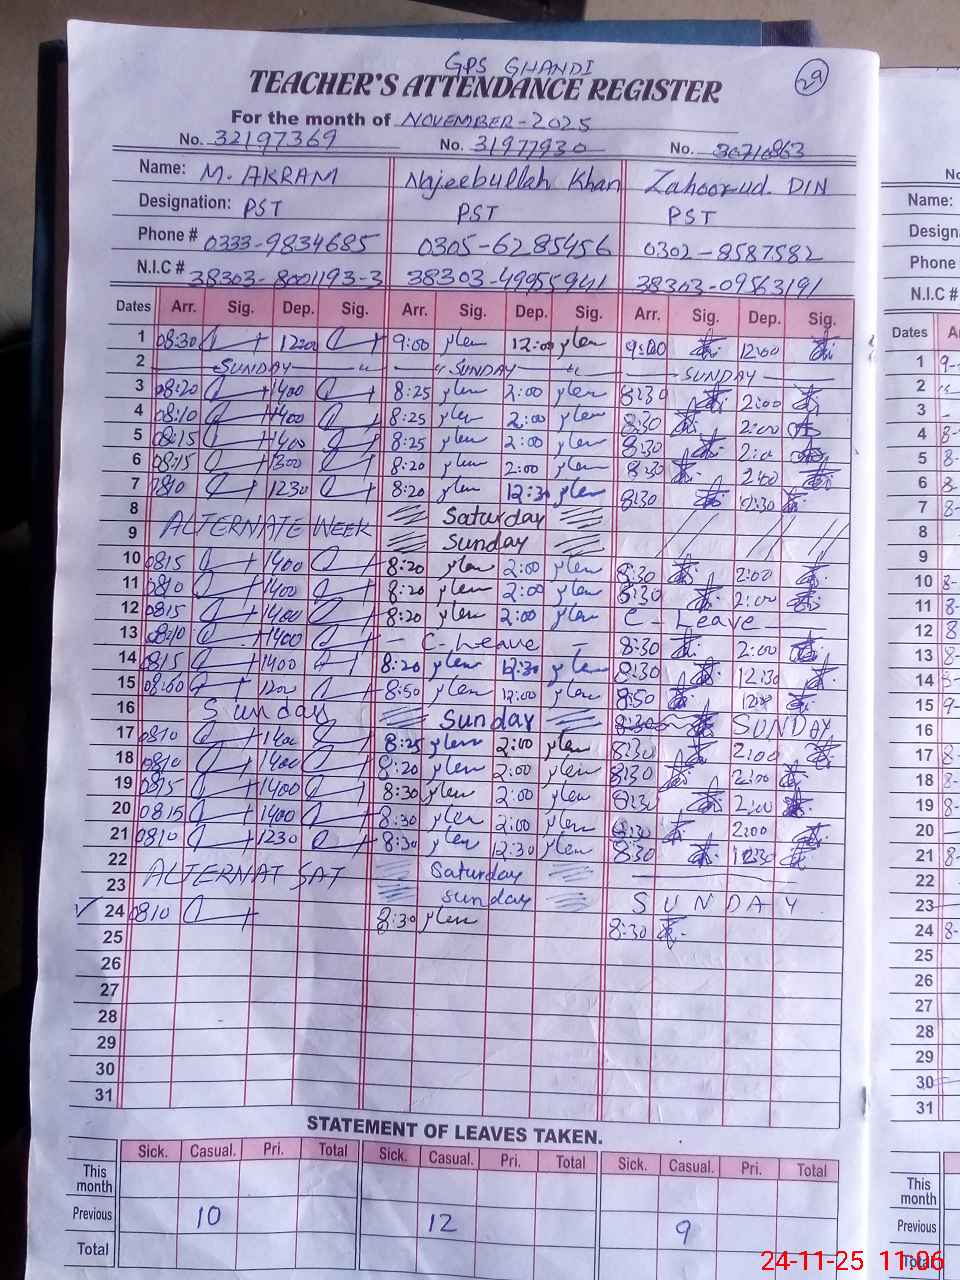 GPS GHANDI
29
TEACHER'S ATTENDANCE REGISTER
For the month of NOVEMBER-2025
No. 32197369 No. 31977930 No.
Name: M. AKRAM Najeebullah Khan Zahoor-ud-DIN
Designation: PST PST PST
Phone # 0333-9834685 0305-6285456 0302-8587582
N.I.C # 38303-8001193-3 38303-49955941 38303-09563191
Dates Arr. Sig. Dep. Sig. Arr. Sig. Dep. Sig. Arr. Sig. Dep. Sig.
1 08:30 1200 9:00 12:00 9:00 12:00
2 SUNDAY SUNDAY SUNDAY
3 08:20 1400 8:25 2:00 8:30 2:00
4 08:10 1400 8:25 2:00 8:30 2:00
5 08:15 1400 8:25 2:00 8:30 2:00
6 08:15 1300 8:20 2:00 8:30 2:00
7 0810 1230 8:20 12:30 8:30 12:30
8 Saturday
ALTERNATE WEEK
9 Sunday
10 0815 1400 8:20 2:00 8:30 2:00
11 0810 1400 8:20 2:00 8:30 2:00
12 0815 1400 8:20 2:00 C-Leave
13 0810 1400 C-Leave 8:30 2:00
14 0815 1400 8:20 12:30 8:30 12:30
15 1200 8:50 12:00 8:50 1200
16 Sunday Sunday SUNDAY
17 0810 1400 8:25 2:00 8:30 2:00
18 0810 1400 8:20 2:00 8:30 2:00
19 0815 1400 8:30 2:00 8:30 2:00
20 0815 1400 8:30 2:00 8:30 2:00
21 0810 1230 8:30 12:30 8:30 12:30
22 ALTERNAT SAT Saturday
23 Sunday SUNDAY
24 0810 8:30 8:30
25
26
27
28
29
30
31
STATEMENT OF LEAVES TAKEN.
Sick. Casual. Pri. Total Sick. Casual. Pri. Total Sick. Casual. Pri. Total
This month
Previous 10 12 9
Total
No
Name:
Design
Phone
N.I.C #
Dates
1 9-
2
3
4 8-
5 8-
6 8-
7 8-
8
9
10 8-
11 8-
12 8
13 8-
14
15 9-
16
17 8-
18 8-
19 8-
20
21 8-
22
23
24 8-
25
26
27
28
29
30
31
This month
Previous
Total
24-11-25 11:06